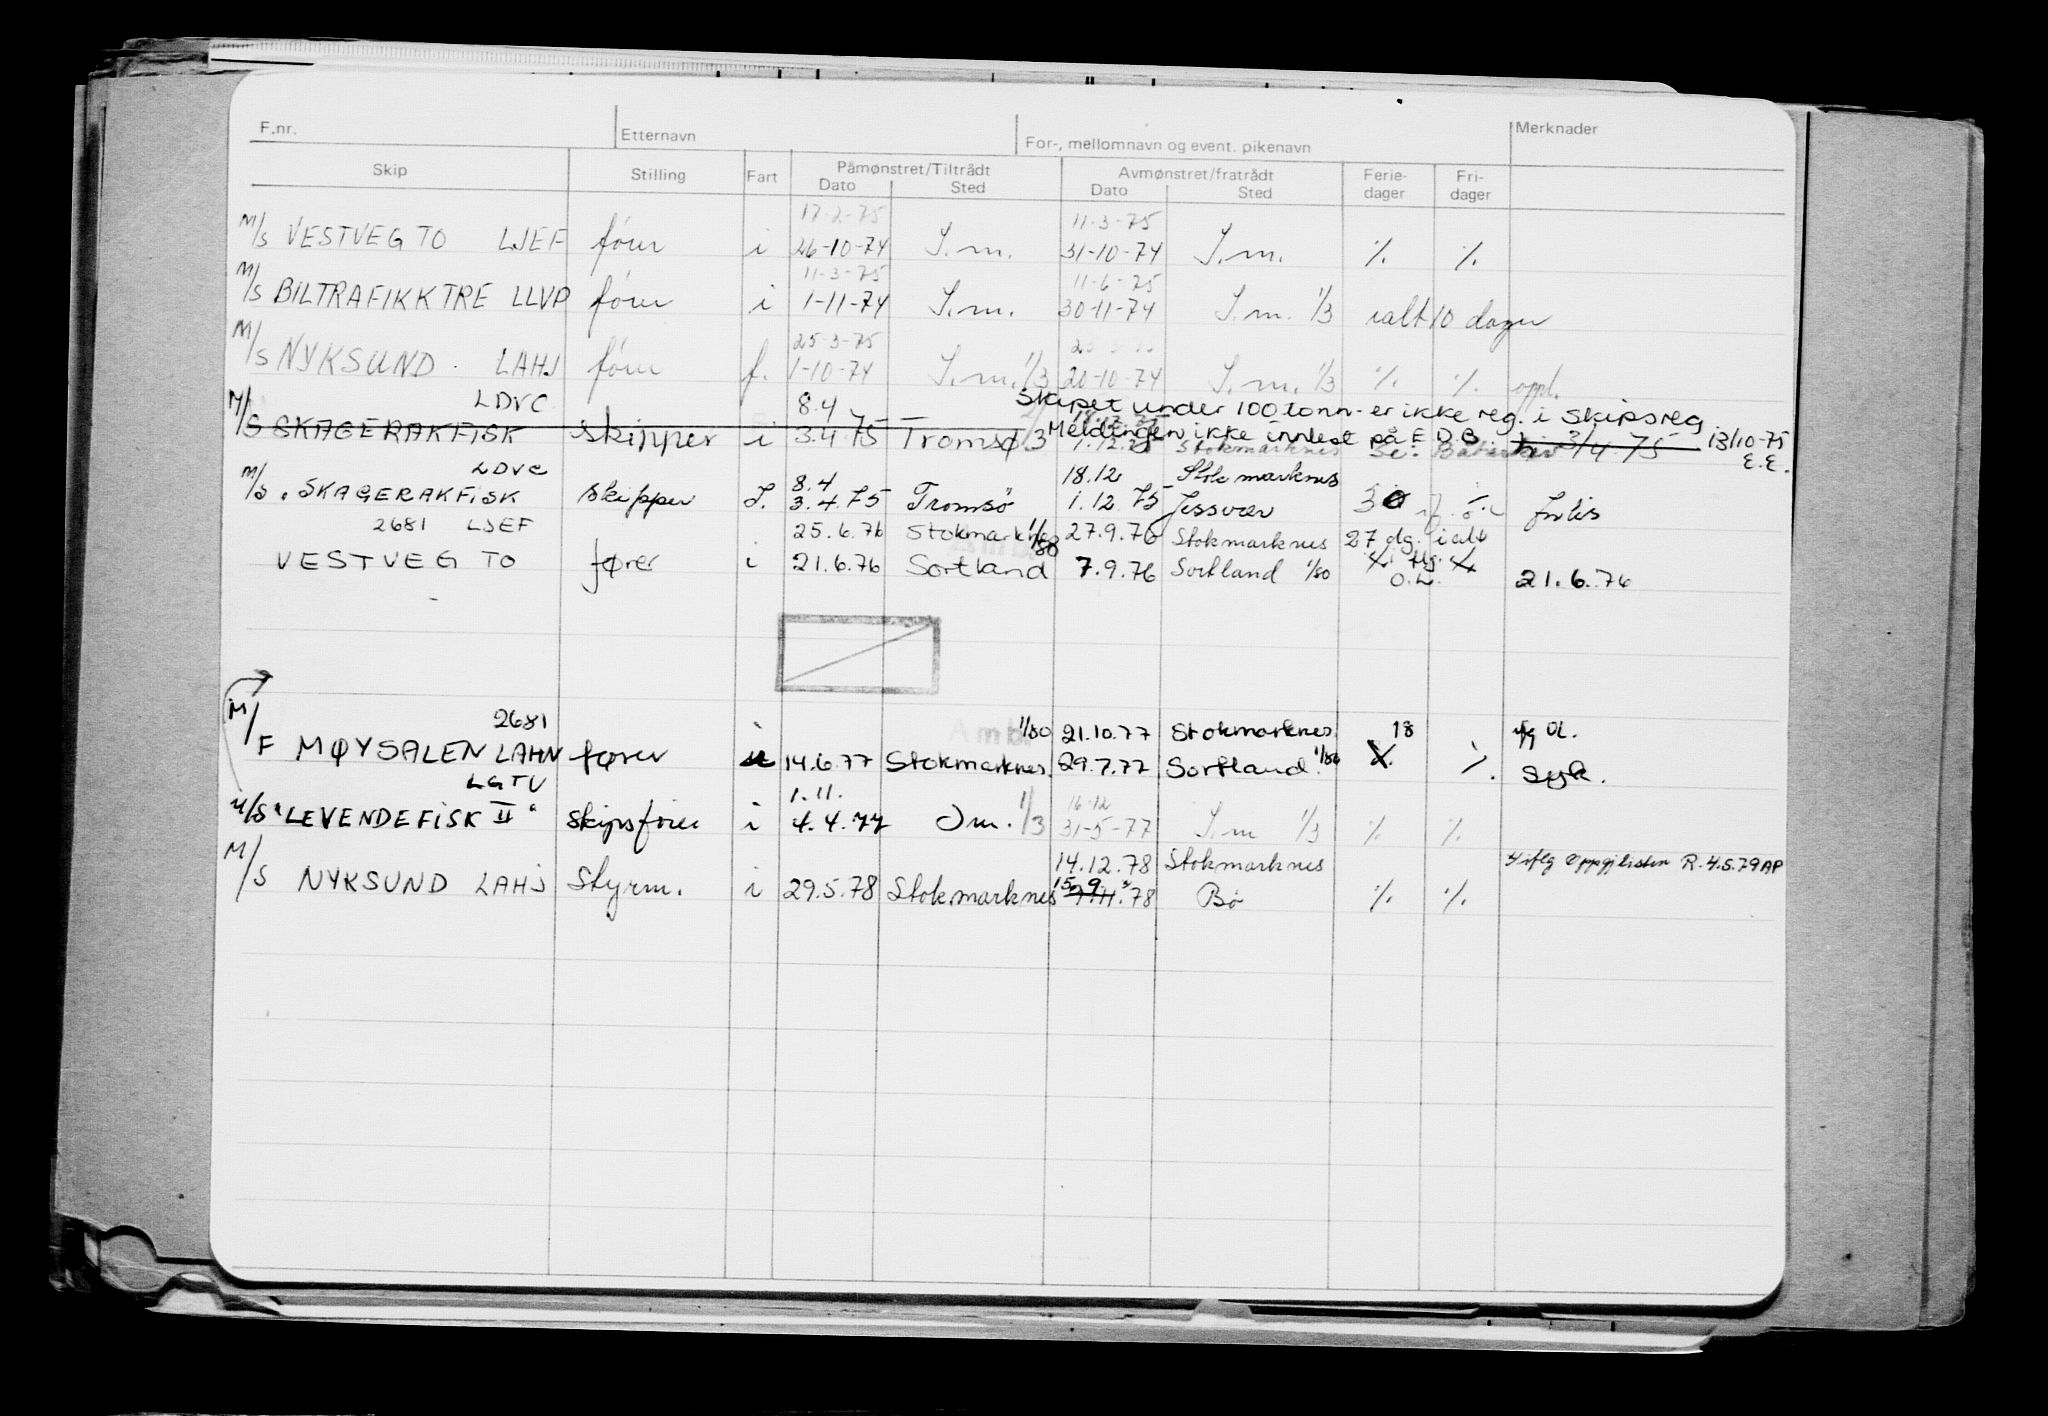 F.nr. Etternavn For-, mellomnavn og event. pikenavn Merknader
Skip Stilling Fart Påmønstret/Tiltrådt Avmønstret/fratrådt Ferie- Fri-
Dato Sted Dato Sted dager dager
17-2-75 11-3-75
M/S VESTVEG TO LJEF fører i 26-10-74 S.m. 31-10-74 S.m. % %
11-3-75 11-6-75
M/S BILTRAFIKK TRE LLVP fører i 1-11-74 S.m. 30-11-74 S.m. 1/3 ialt 10 dager
25-3-75
M/S NYKSUND LAHJ fører f. 1-10-74 S.m. 1/3 20-10-74 S.m. 1/3 % % oppl.
LDVC 8.4 Skipet under 100 tonn - er ikke reg. i skipsreg.
M/S SKAGERAKFISK skipper i 3.4.75 Tromsø 1.12.75 Stokmarknes 3/4.75 13/10-75
Meldingen ikke innlest på E.D.B. E.E.
LDVC 8.4 18.12 Stokmarknes
M/S "SKAGERAKFISK skipper I. 3.4.75 Tromsø 1.12.75 Jessvær 30
2681 LJEF 25.6.76 Stokmarknes 1/80 27.9.76 Stokmarknes 27 dg. ialt
VESTVEG TO fører i 21.6.76 Sortland 7.9.76 Sortland 1/80 21.6.76
2681 i 1/80 21.10.77 Stokmarknes 18 ifg OL.
M/F MØYSALEN LAHN fører 14.6.77 Stokmarknes. 29.7.77 Sortland. 1/80 X. %. syk.
LGTU 1.11. 16-12
M/S "LEVENDEFISK II" skipsfører i 4.4.77 S.m. 1/3 31-5-77 S.m 1/3 % %
14.12.78 Stokmarknes iflg oppgj.listen R.4.5.79 AP
M/S NYKSUND LAHJ Styrm. i 29.5.78 Stokmarknes 15.9.78 Bø % %